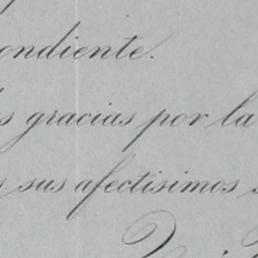 pondiente.
gracias por la
sus afectísimos